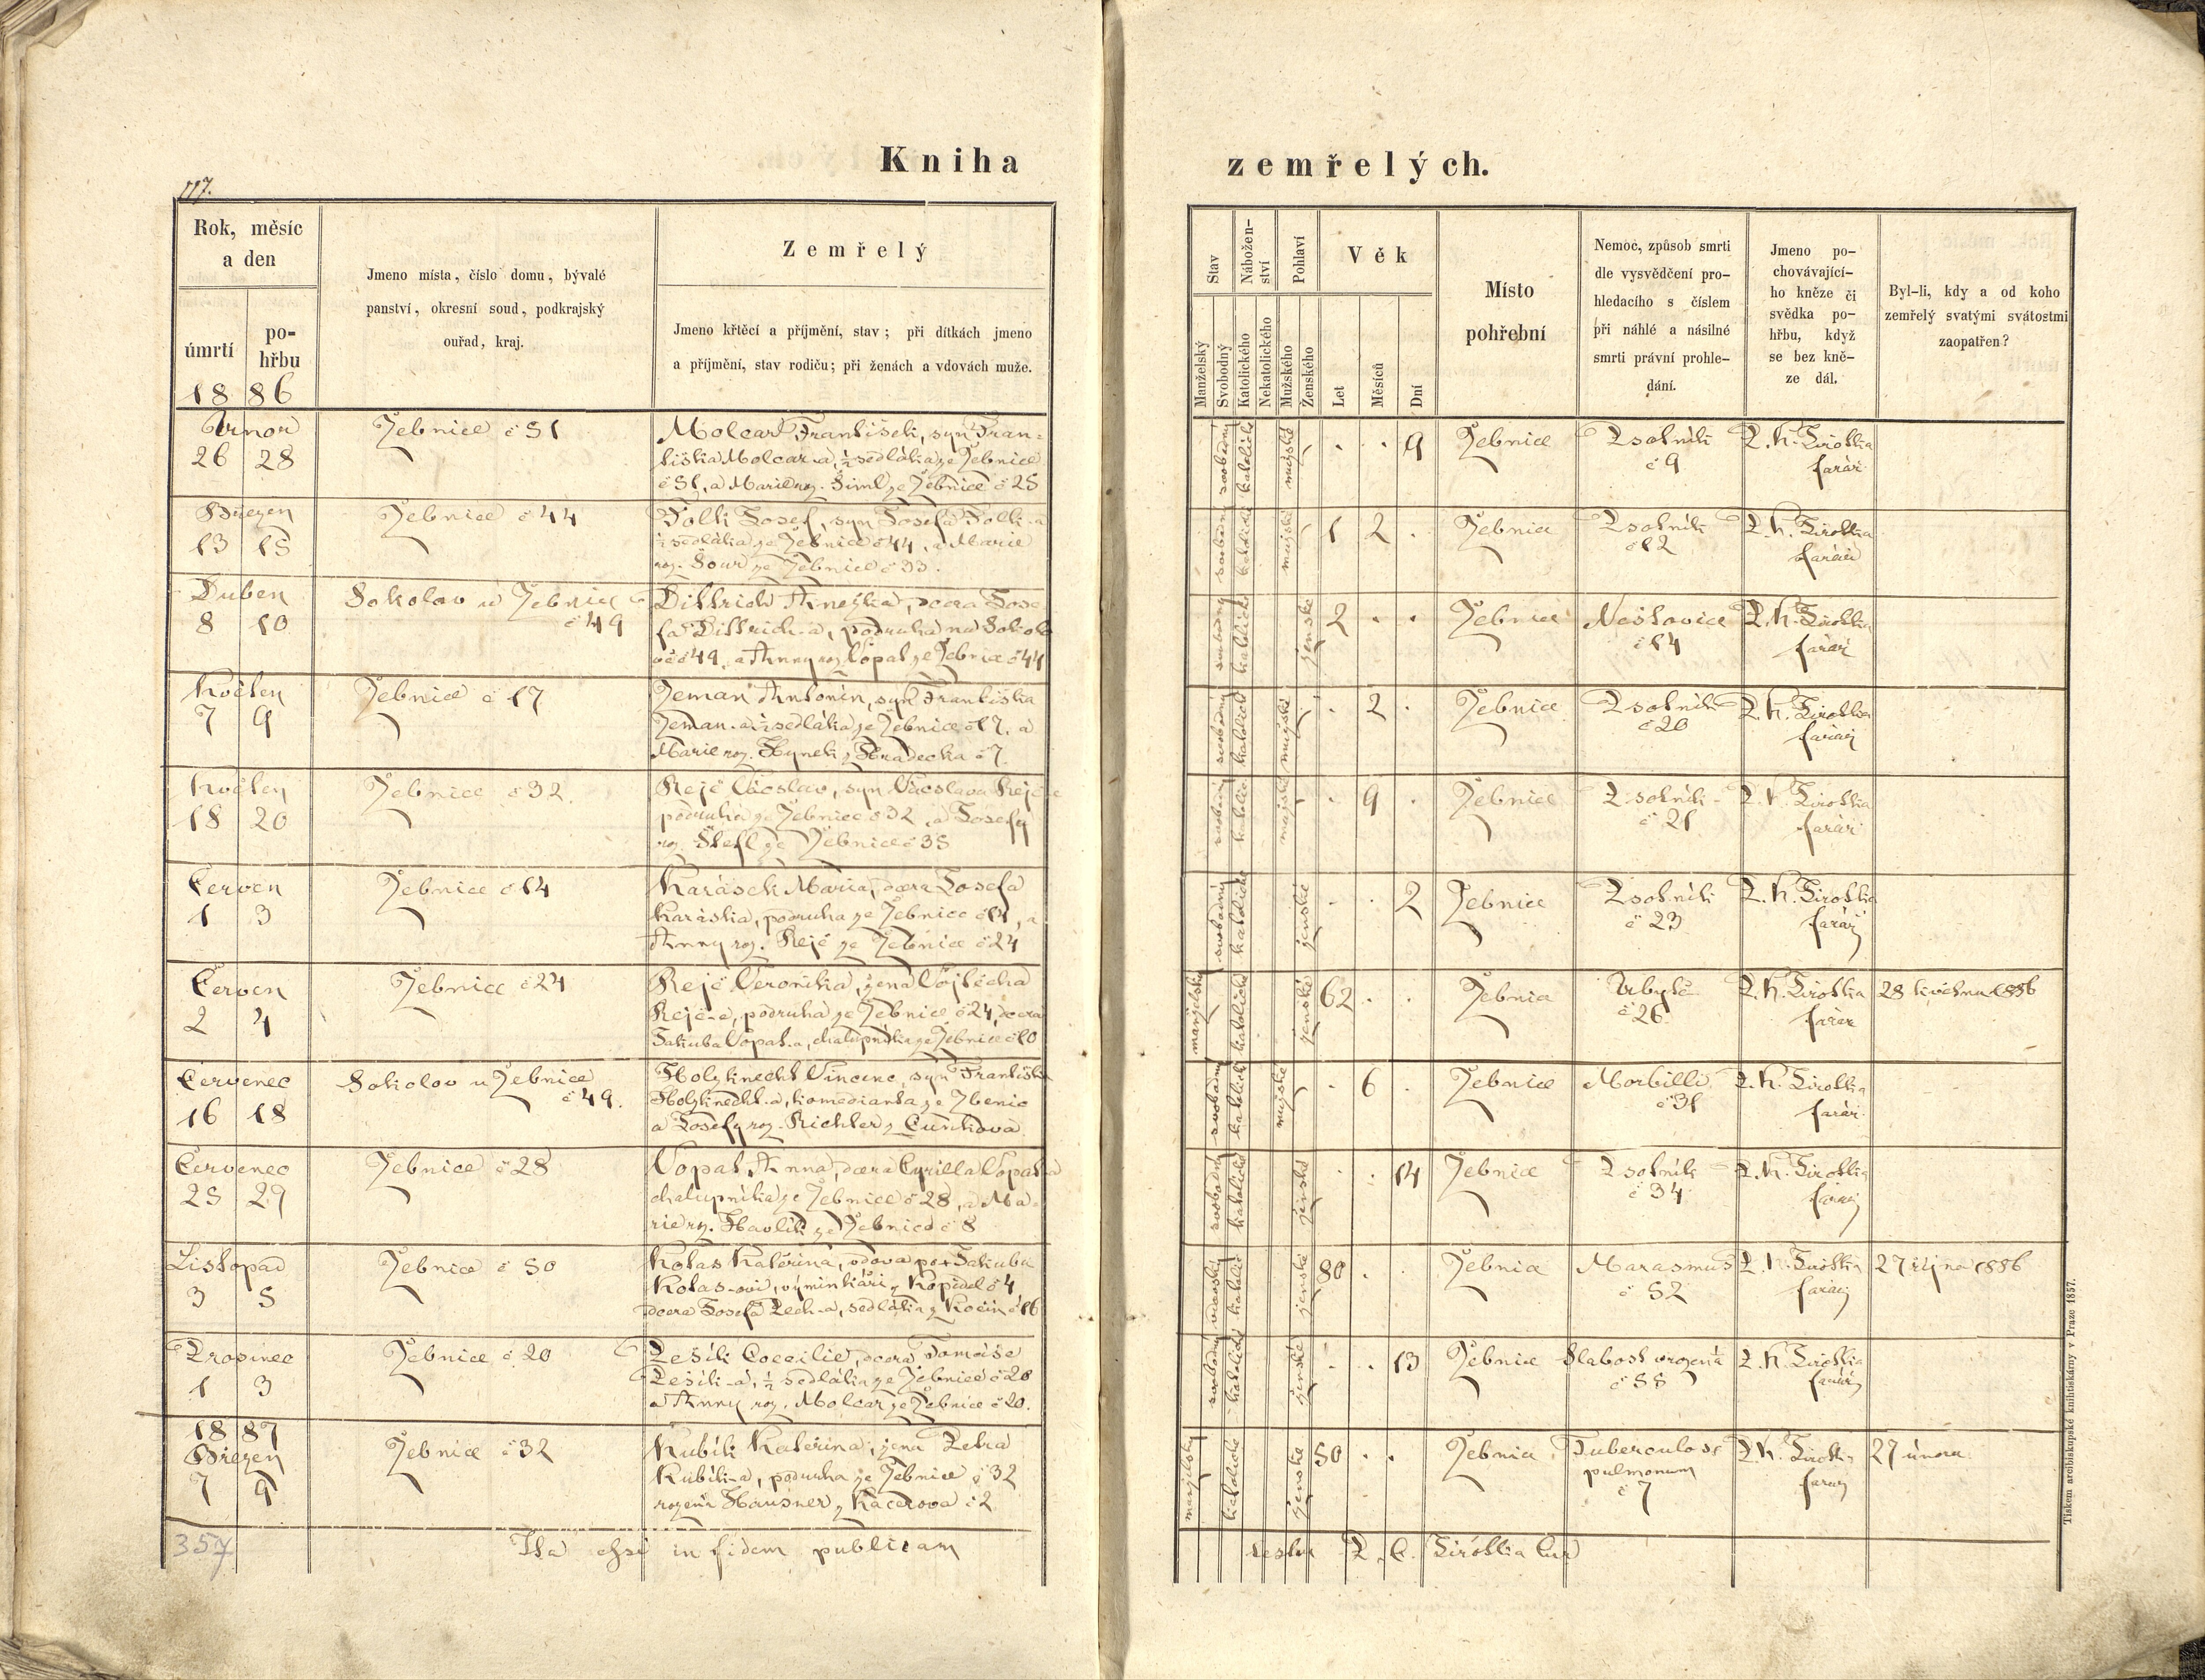 Kniha zemřelých.
117.
Rok, měsíc
a den
úmrtí
po-
hřbu
1886
Jmeno místa, číslo domu, bývalé
panství, okresní soud, podkrajský
ouřad, kraj.
Zemřelý
Jmeno křtěcí a příjmění, stav; při dítkách jmeno
a příjmění, stav rodičů; při ženách a vdovách muže.
Stav
Manželský
Svobodný
Nábožen-
ství
Katolického
Nekatolického
Pohlaví
Mužského
Ženského
Věk
Let
Měsíců
Dní
Místo
pohřební
Nemoc, způsob smrti
dle vysvědčení pro-
hledacího s číslem
při náhlé a násilné
smrti právní prohle-
dání.
Jmeno po-
chovávající-
ho kněze či
svědka po-
hřbu, když
se bez kně-
ze dál.
Byl-li, kdy a od koho
zemřelý svatými svátostmi
zaopatřen?
Únor
26 28
Žebnice č 51
Molcar František, syn Fran-
tiška Molcar-a, ½ sedláka ze Žebnice
č 51, a Marie roz. Šiml ze Žebnice č 25
svobodný katolické mužské
. . 9
Žebnice
Psotník
č 9
farář
Březen
13 15
Žebnice č 44
Josef, syn Josefa
½ sedláka ze Žebnice č 44, a Marie
roz. ze Žebnice č 33.
svobodný katolické mužské
1 2 .
Žebnice
Psotník
č 12
farář
Duben
8 10
Sokolov u Žebnice
č 49
Dittrich Anežka, dcera Jose-
fa Dittrich-a, podruha na Sokolo-
vě č 49, a Anny roz. Vopat ze Žebnice č 44
svobodný katolické ženské
2 . .
Žebnice
Neštovice
č 14
farář
Květen
7 9
Žebnice č 17
Zeman Antonín, syn Františka
Zeman-a ½ sedláka ze Žebnice č 17, a
Marie roz. Hynek z Hradecka č 7.
svobodný katolické mužské
. 2 .
Žebnice
Psotník
č 20
farář
Květen
18 20
Žebnice č 32.
Rejč Václav, syn Václava Rejč-e
podruha ze Žebnice č 32, a Josefy
roz. Štefl ze Žebnice č 35
svobodný katolické mužské
. 9 .
Žebnice
Psotník
č 21
farář
Červen
1 3
Žebnice č 14
Karásek Maria, dcera Josefa
Karáska, podruha ze Žebnice č 14, a
Anny roz. Rejč ze Žebnice č 24
svobodný katolické ženské
. . 2
Žebnice
Psotník
č 23
farář
Červen
2 4
Žebnice č 24
Rejč Veronika, žena Vojtěcha
Rejč-e, podruha ze Žebnice č 24, dcera
Jakuba Vopat-a, chalupníka ze Žebnice č 10
manželský katolické ženské
62 . .
Žebnice
Úbytě
č 26
farář
28 května 1886
Červenec
16 18
Sokolov u Žebnice
č 49.
Holzknecht Vincenc, syn Františka
Holzknecht-a, komedianta ze Zbenic
a Josefy roz. Richter z Cunkova
svobodný katolické mužské
. 6 .
Žebnice
Morbilli
č 31
farář
Červenec
25 29
Žebnice č 28
Vopat Anna, dcera Cyrilla Vopat-a
chalupníka ze Žebnice č 28, a Ma-
rie rz. Havlík ze Žebnice č 8
svobodný katolické ženské
. . 14
Žebnice
Psotník
č 34
farář
Listopad
3 5
Žebnice č 50
Kotas Kateřina, vdova po † Jakubu
Kotas-ovi, výminkáři z Kopidel č 4
dcera Josefa Pech-a, sedláka z Kočín č 16
vdovský katolické ženské
80 . .
Žebnice
Marasmus
č 52
farář
27 října 1886
Prosinec
1 3
Žebnice č 20
Pešík Coecilie, dcera Tomáše
Pešík-a, ½ sedláka ze Žebnice č 20
a Anny roz. Molcar ze Žebnice č 20.
svobodný katolické ženské
. . 13
Žebnice
Slabost vrozená
č 55
farář
1887
Březen
7 9
Žebnice č 32
Kubík Kateřina, žena Petra
Kubík-a, podruha ze Žebnice č 32
rozená Hausner z Kačerova č 2
manželský katolické ženské
50 . .
Žebnice
Tuberculose
pulmonum
č 7
farář
27 února
357
Ita esse in fidem publicam
Tiskem arcibiskupské knihtiskárny v Praze 1857.